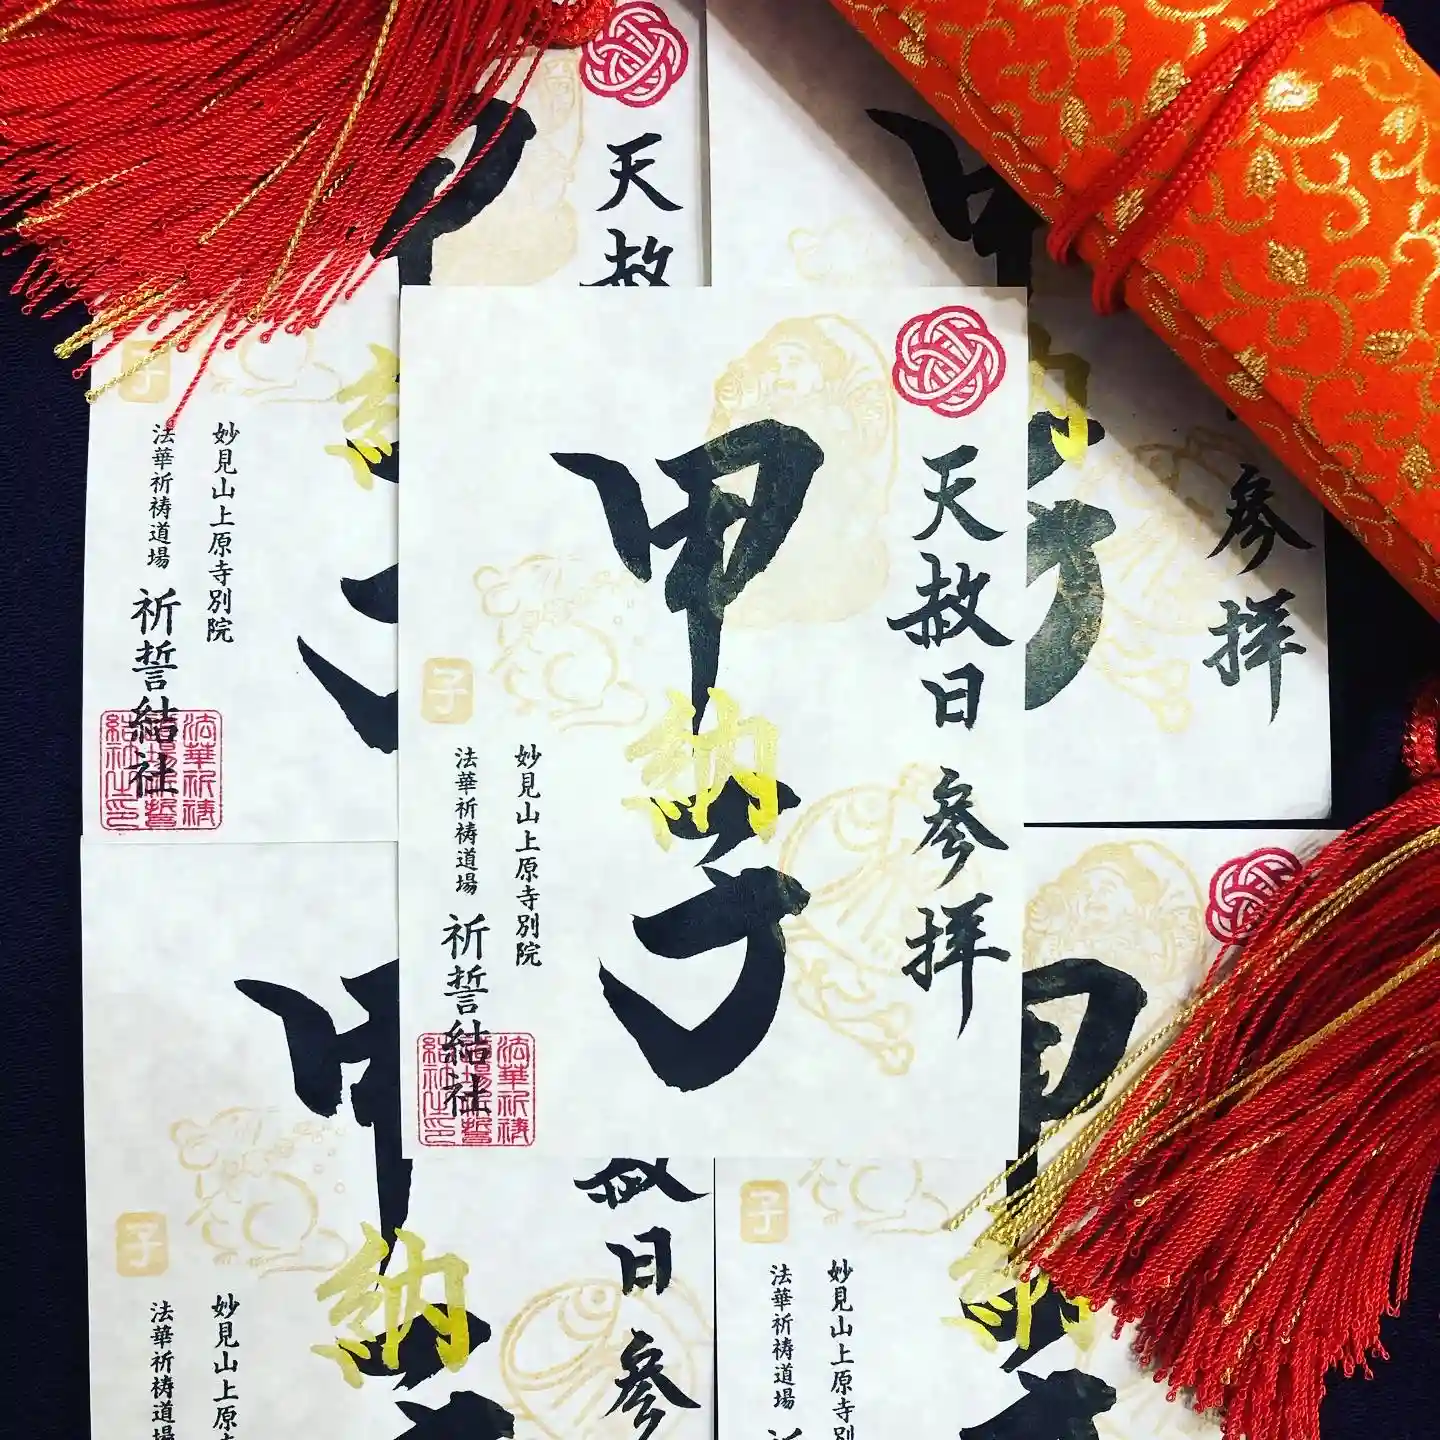 天赦日 参拝
甲子
納
子
妙見山上原寺別院
法華祈祷道場
祈誓結社
天赦
甲
子
妙見山上原寺別院
法華祈祷道場
祈誓結社
参拝
納
赦日 参
甲
納
子
妙見山上原寺
法華祈祷道場
甲
納
子
妙見山上原寺別院
法華祈祷道場